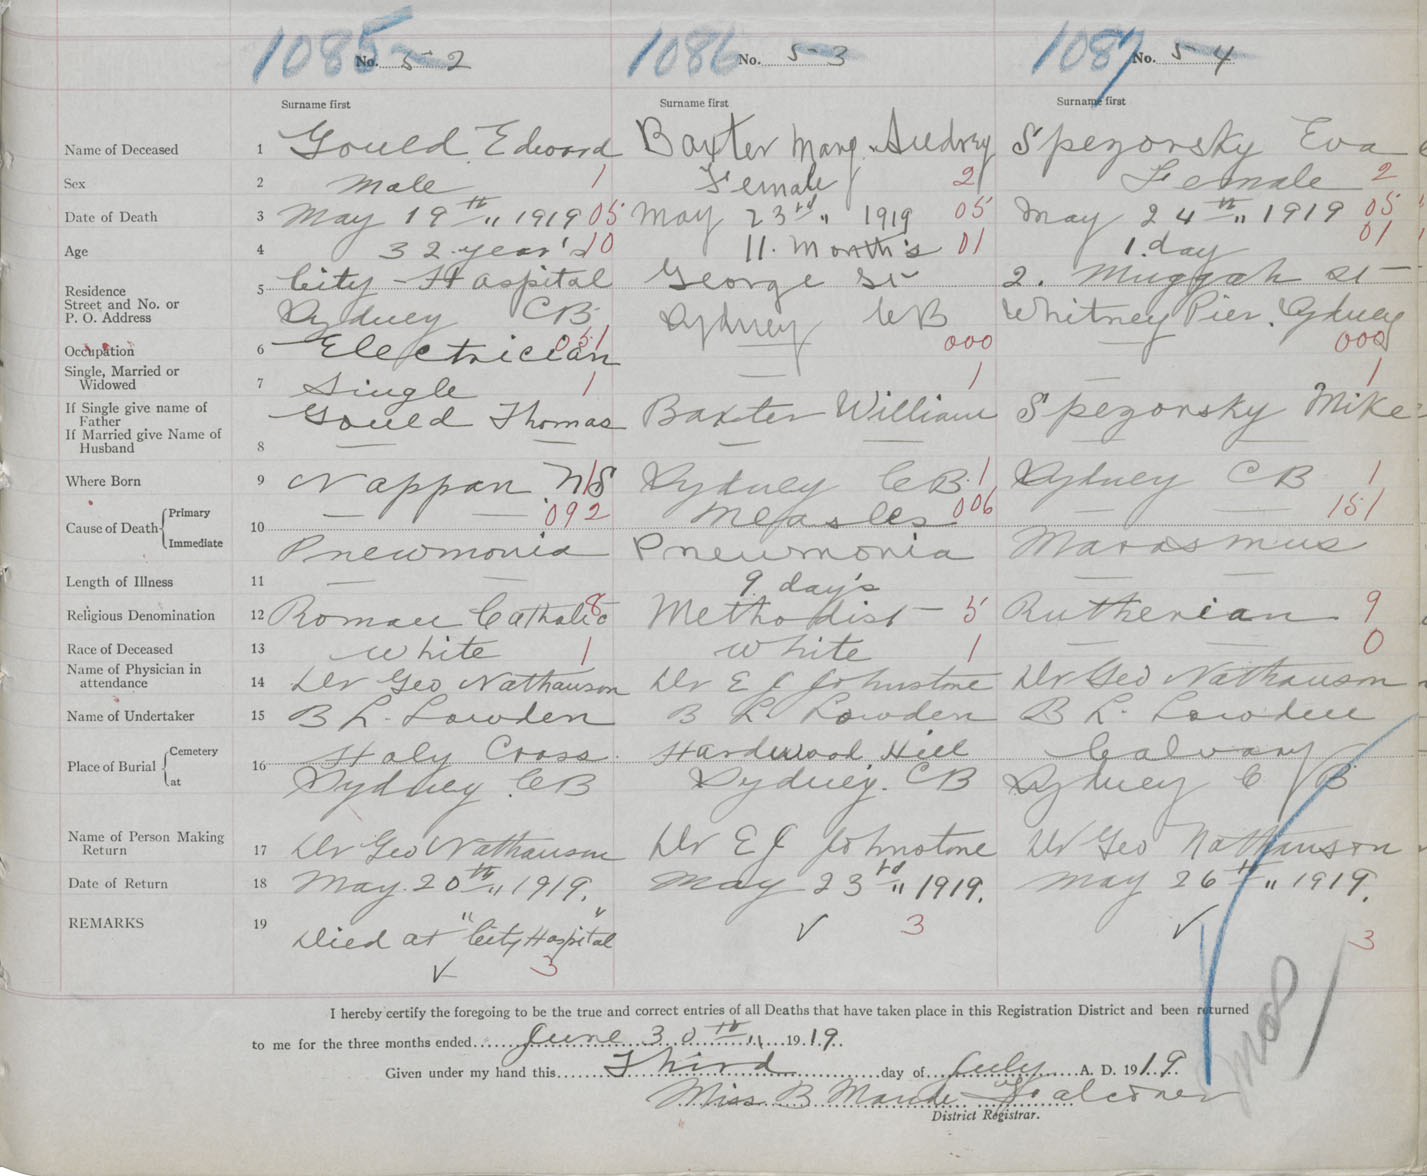 1085 No. 52 1086 No. 53 1087 No. 54
Surname first Surname first Surname first
Name of Deceased 1 Gould Edward Baxter Marg. Audrey Spezorsky Eva
Sex 2 Male 1 Female 2 Female 2
Date of Death 3 May 19th " 1919 05 May 23rd " 1919 05 May 24th " 1919 05
Age 4 32 year's 10 11. Month's 01 1 day 01
Residence 5 City Hospital George St 2. Muggah St
Street and No. or
P. O. Address Sydney CB Sydney CB Whitney Pier. Sydney
Occupation 6 Electrician 051 — 000 — 000
Single, Married or
Widowed 7 Single 1 — 1 — 1
If Single give name of
Father Gould Thomas Baxter William Spezorsky Mike
If Married give Name of
Husband 8 — — — — — —
Where Born 9 Nappan NS 1 Sydney CB. 1 Sydney CB 1
Cause of Death Primary 10 — — 092 Measles 006 — — 151
Immediate Pneumonia Pneumonia Marasmus
Length of Illness 11 — — 9 day's — —
Religious Denomination 12 Roman Catholic 8 Methodist 5 Ruthenian 9
Race of Deceased 13 White 1 White 1 — — 0
Name of Physician in
attendance 14 Dr Geo Nathanson Dr E J Johnstone Dr Geo Nathanson
Name of Undertaker 15 B L. Lowden B L. Lowden B L. Lowden
Place of Burial Cemetery 16 Holy Cross. Hardwood Hill Calvary
at Sydney CB Sydney. CB Sydney C B
Name of Person Making
Return 17 Dr Geo Nathanson Dr E J Johnstone Dr Geo Nathanson
Date of Return 18 May. 20th " 1919. May 23rd " 1919. May 26th " 1919.
REMARKS 19 Died at "City Hospital" ✓ 3 ✓ 3
✓ 3
I hereby certify the foregoing to be the true and correct entries of all Deaths that have taken place in this Registration District and been returned
to me for the three months ended June 30th " 1919.
Given under my hand this Third day of July A. D. 1919.
Miss B Maude Falconer
District Registrar.